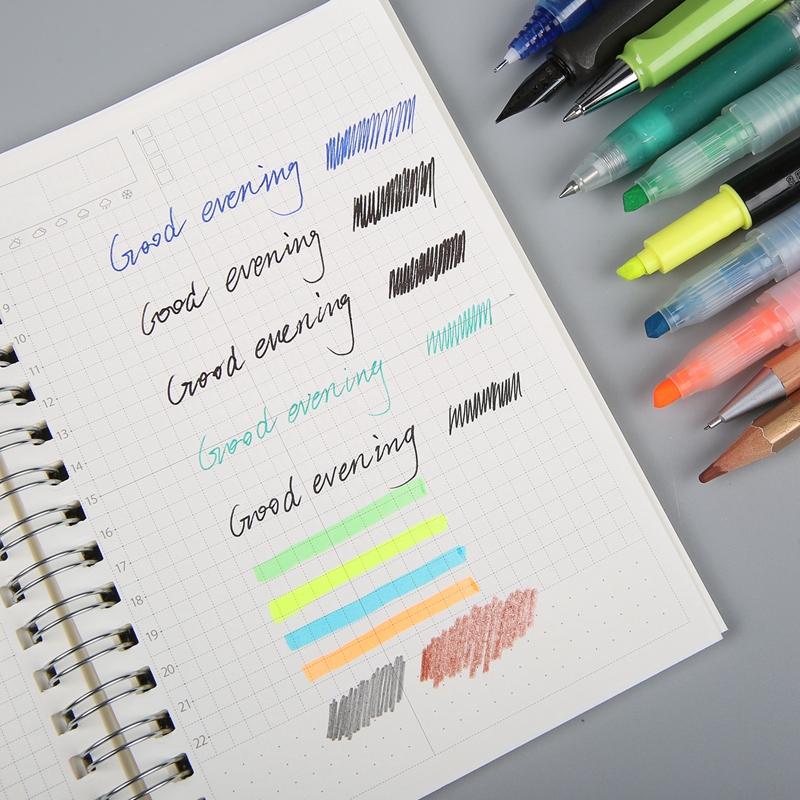 Good evening
Good evening
Good evening
Good evening
Good evening
9
10
11
12
13
14
15
16
17
18
19
20
21
22